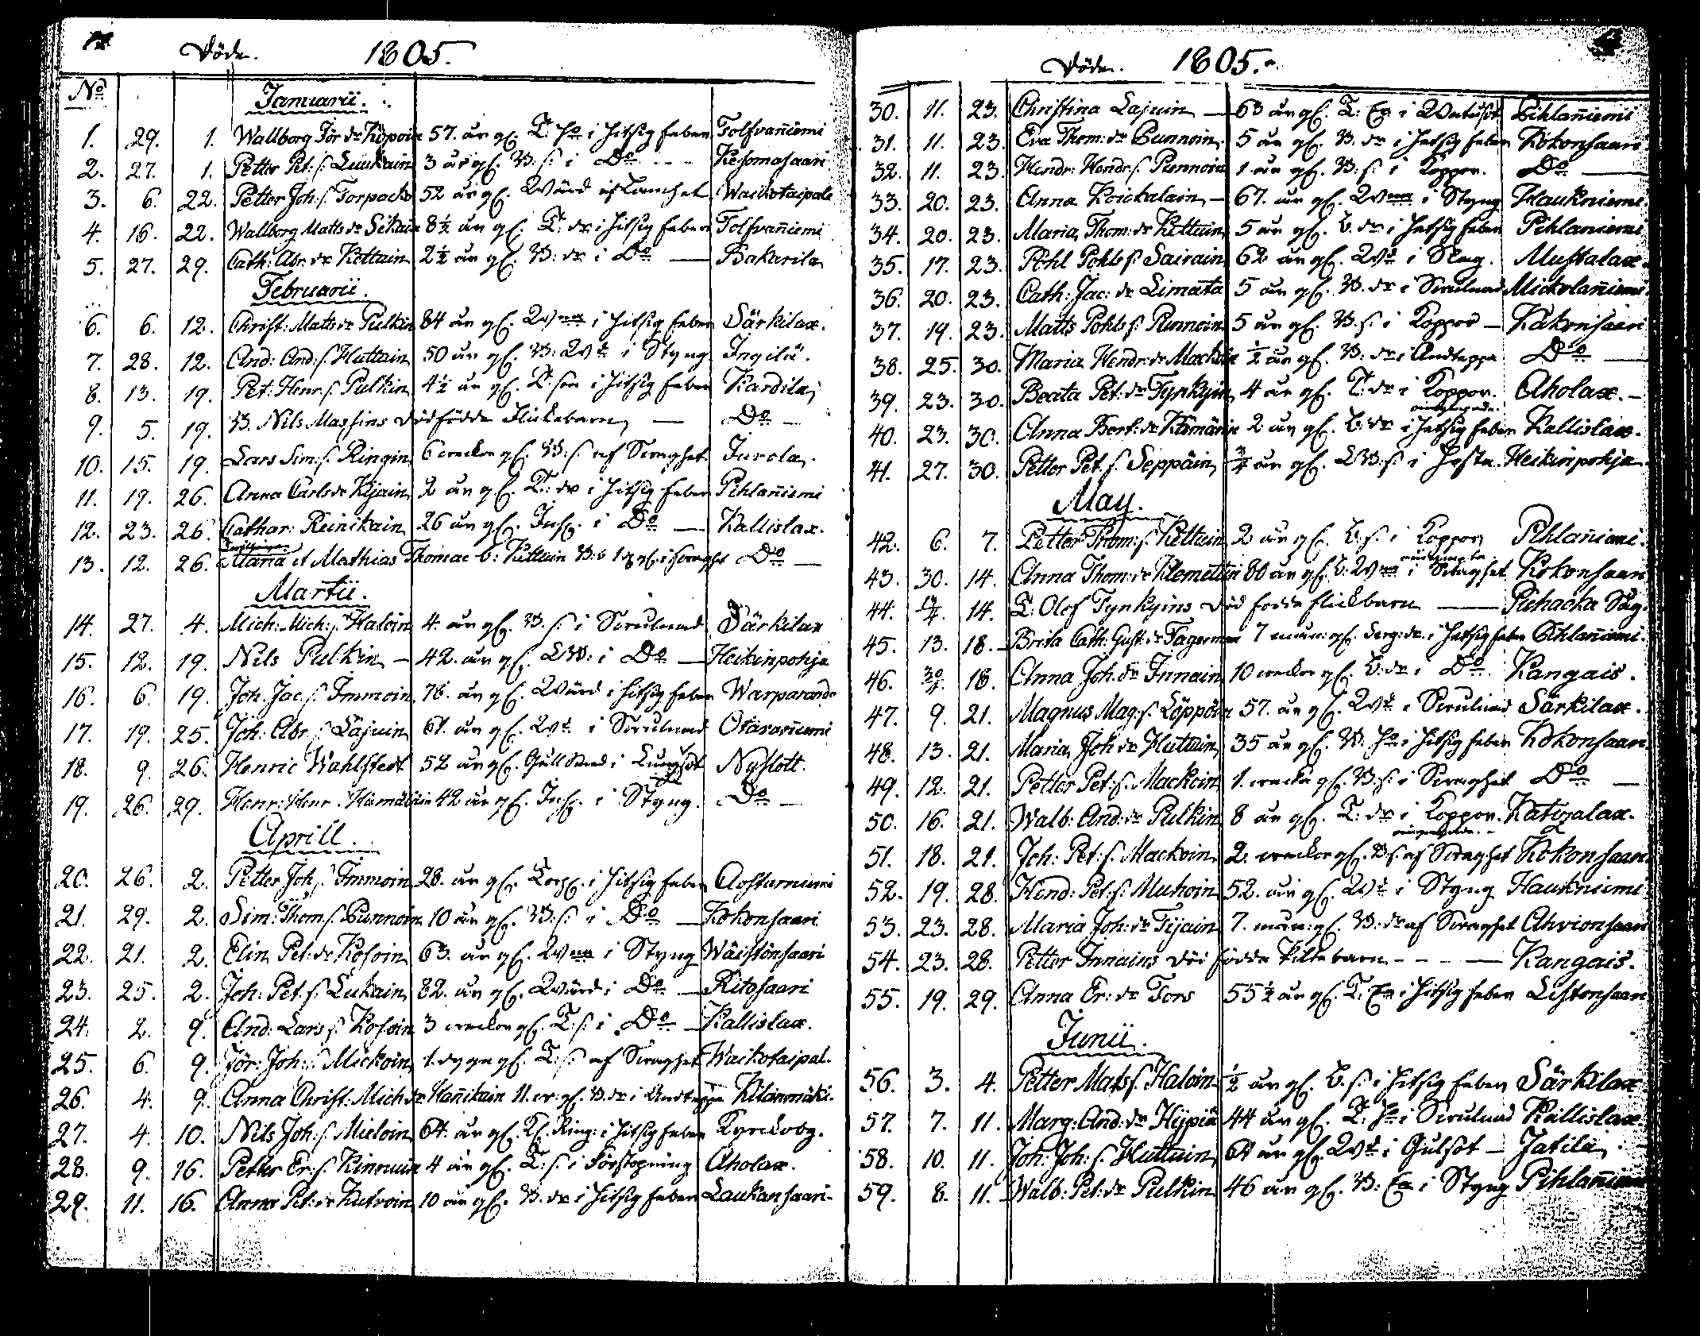 Döde. 1805.
No
Januarii.
1. 29. 1. Wallborg Jör: dr Köpoin 57. år gl. T. Ha i hitsig feber Tolfvaniemi
2. 27. 1. Petter Pet: s. Luukain 3 år gl. B. s. i Do Kesomasaari
3. 6. 22. Petter Joh: s. Torpacko 52 år gl. Wärd af Lamhet Waikotaipale
4. 16. 22. Wallborg Matts dr Sikain 8½ år gl. T. dr i hitsig feber Tolfvaniemi
5. 27. 29. Cath: Abr: dr Kettuin 2½ år gl. B: dr i Do Pakarila
Februarii.
6. 6. 12. Christ: Matts dr Pulkin 84 år gl. Wna i hitsig feber Särkilax.
7. 28. 12. And: And: s. Huttuin 50 år gl. B: i Styng Ingilä.
8. 13. 19. Pet: Henr: s. Pulkin 4½ år gl. T. son i hitsig feber Kardila
9. 5. 19. B. Nils Massins dödfödde flickebarn Do
10. 15. 19. Lars Sim: s. Ringin 6 weckor gl. B: s. af Slaghet Jurola.
11. 19. 26. Anna Carls dr Kijain 2 år gl. T: dr i hitsig feber Pihlaniemi
12. 23. 26. Cathar: Reinikain 26 år gl. Inh. i Do Kallislax.
13. 12. 26. Maria et Mathias Thomae b: Kettuin Do
Martii.
14. 27. 4. Mich: Mich: s. Haloin 4. år gl. B. s. i Särkilax
15. 12. 19. Nils Pulkin 42. år gl. i Do Heikinpohja
16. 6. 19. Joh: Jac: s. Immoin 76 år gl. Wärd i hitsig feber Warparanda
17. 19. 25. Joh: Abr: s. Lajuin 61. år gl. i Otavaniemi
18. 9. 26. Henric Wahlstedt 52 år gl. i Lungsot Nyslott.
19. 26. 29. Henr: Henr: Hämäläin 42 år gl. Inh. i Styng. Do
Aprill.
20. 26. 2. Petter Joh: s. Immoin 28. år gl. i hitsig feber Aostarniemi
21. 29. 2. Sim: Thom: s. Punnoin 10 år gl. B: s. i Do Kokonsaari
22. 21. 2. Elin Pet: dr Kosoin 63. år gl. Wna i Styng Wäistönsaari
23. 25. 2. Joh: Pet: s. Lukain 82. år gl. Wärd i Do Ritosaari
24. 2. 9. And: Lars s. Kosoin 3 weckor gl. T: s. i Do Kallislax.
25. 6. 9. Jör: Joh: s. Mickoin 1. dygn gl. T: s. af Slaghet Waikotaipal.
26. 4. 9. Anna Christ: Mich: dr Hanikain 11. B. dr i Andtäppa Kilanmäki.
27. 4. 10. Nils Joh: s. Mieloin 64. år gl. i hitsig feber Kyrckobg.
28. 9. 16. Petter Er: s. Kinnuin 4 år gl. T: s. i Förstopning Aholax.
29. 11. 16. Anna Pet: dr Kutvoin 10 år gl. B. dr i hitsig feber Laukansaari
Döde. 1805.
30. 11. 23. Christina Lajuin 63 år gl. T: Ea i Watusot Pihlaniemi
31. 11. 23. Eva Thom: dr Punnoin 5 år gl. B. dr i hitsig feber Kokonsaari
32. 11. 23. Hendr: Hendr: s. Punnoin 1 år gl. B: s. i Koppor. Do
33. 20. 23. Anna Koickalain 67. år gl. Wna i Styng Haukniemi
34. 20. 23. Maria Thom: dr Kettuin 5 år gl. B. dr i hitsig feber Pihlaniemi
35. 17. 23. Påhl Pohls s. Sairain 62 år gl. i Slag. Mustalax.
36. 20. 23. Cath: Jac: dr Limatta 5 år gl. B. dr i Mickolaniemi
37. 19. 23. Matts Pohls s. Punnoin 5 år gl. B: s. i Koppor Kokonsaari
38. 25. 30. Maria Hendr: dr Mackoin ½ år gl. B: dr i Andtäppa Do
39. 23. 30. Beata Pet: dr Tynkyin 4 år gl. T: dr i Koppor. Aholax.
40. 23. 30. Anna Bert: dr Hämäläin 2 år gl. B: dr i hitsig feber Kallislax.
41. 27. 30. Petter Pet: s. Seppäin ¾ år gl. i Hosta Heikinpohja
May.
42. 6. 7. Petter Thom: s. Kettuin 2 år gl. B: s. i Koppor Pihlaniemi.
43. 30. 14. Anna Thom: dr Klemettin 80 år gl. B: Wna i Slaghet Kokonsaari
44. 14. T: Olof Tynkyins död födde flickbarn Piehacka Såg.
45. 13. 18. Brita Cath: Gust: dr Fagerman 7 mån: gl. Serg: dr i hitsig feber Pihlaniemi.
46. 30 18. Anna Joh: dr Innain 10 weckor gl. B: dr i Do Kangais.
47. 9. 21. Magnus Mag: s. Löppöin 57. år gl. i Särkilax.
48. 13. 21. Maria Joh: dr Huttuin 35 år gl. B. Ha i hitsig feber Kokonsaari
49. 12. 21. Petter Pet: s. Mackoin 1. wecka gl. B: s. i Slaghet Do
50. 16. 21. Walb: And: dr Pulkin 8 år gl. T: dr i Koppor. Katizalax.
51. 18. 21. Joh: Pet: s. Mackoin 2. weckor gl. B: s. af Slaghet Kokonsaari
52. 19. 28. Hend: Pet: s. Muhoin 52. år gl. i Styng Haukniemi
53. 23. 28. Maria Joh: dr Tijain 7. mån: gl. B: dr af Slaghet Ahvionsaari
54. 23. 28. Petter Innains död födde Piltebarn Kangais.
55. 19. 29. Anna Er: dr Tors 55½ år gl. T: Ea i hitsig feber Listonsaari
Junii.
56. 3. 4. Petter Mats s. Haloin ½ år gl. B: s. i hitsig feber Särkilax
57. 7. 11. Marg: And: dr Hyypiä 44 år gl. T: Ha i Kallislax
58. 10. 11. Joh: Joh: s. Huttuin 64 år gl. i Gulsot Jatila
59. 8. 11. Walb: Pet: dr Pulkin 46 år gl. B: Ea i Styng Pihlaniemi